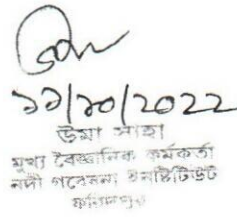 ১১/১০/2022
উমা সাহা
মুখ্য বৈজ্ঞানিক কর্মকর্তা
নদী গবেষনা ইনস্টিটিউট
ফরিদপুর